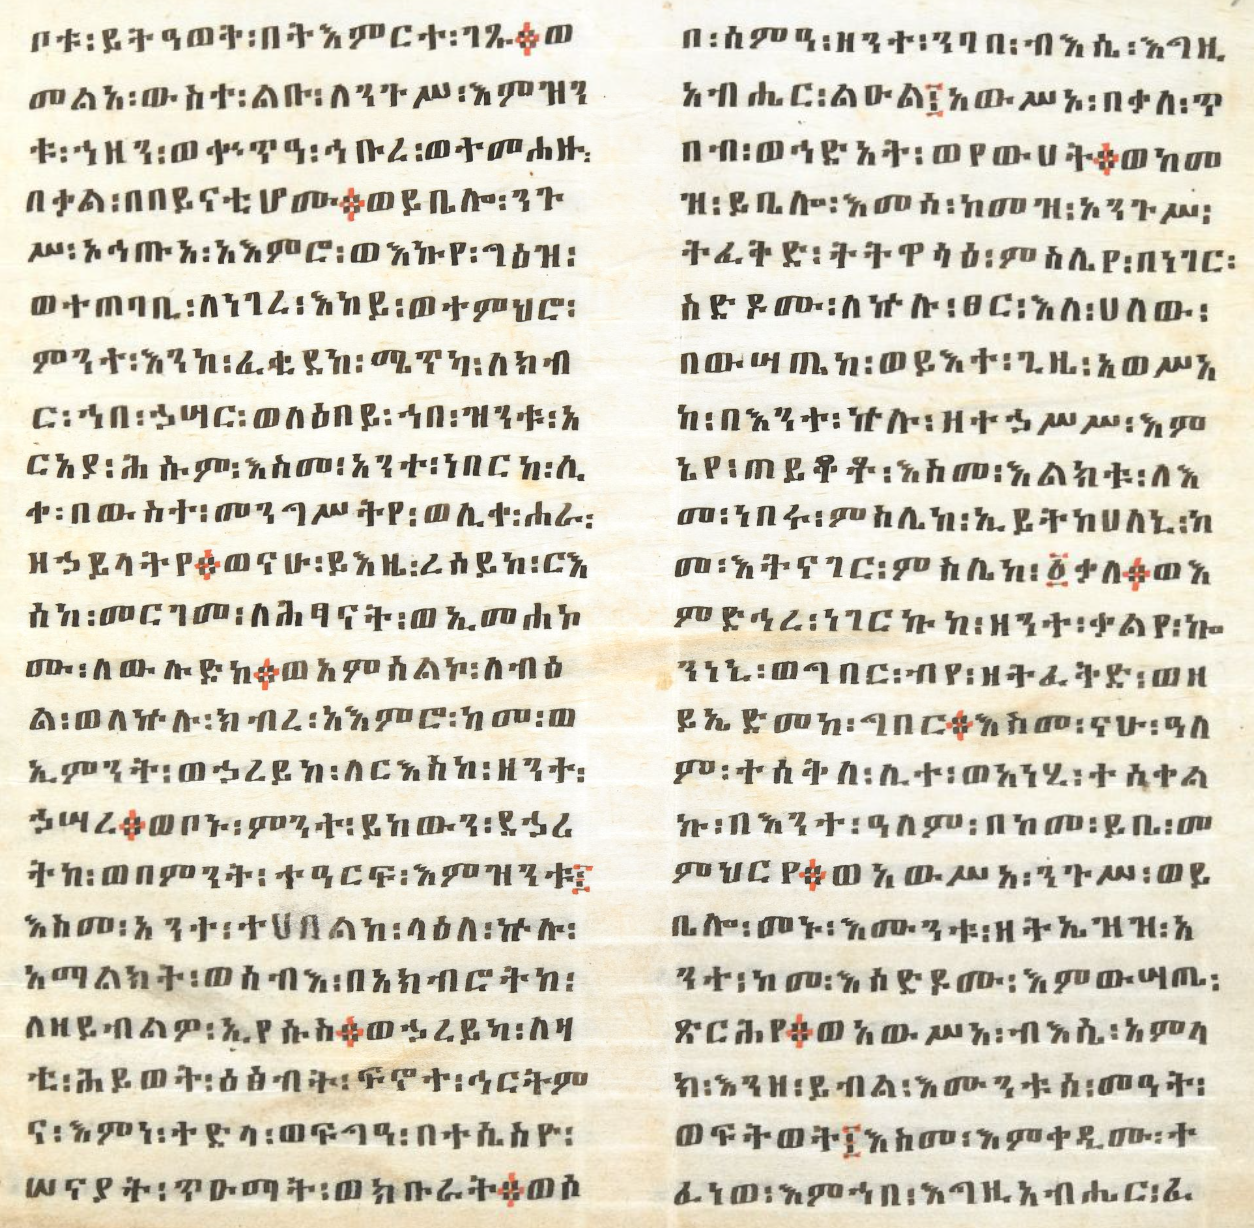 ቦቱ፡ይትዓወት፡በትእምርተ፡ገጹ።ወ
መልአ፡ውስተ፡ልቡ፡ለንጉሥ፡እምዝን
ቱ፡ኀዘን፡ወቍጥዓ፡ኅቡረ፡ወትመሐዙ፡
በቃል፡በበይናቲሆሙ።ወይቤሎ፡ንጉ
ሥ፡ኦኅጡአ፡አእምሮ፡ወእኩየ፡ግዕዝ፡
ወተጠባቢ፡ለነገረ፡እከይ፡ወተምህሮ፡
ምንተ፡እንከ፡ፈቂደከ፡ሜጥካ፡ለክብ
ር፡ኀበ፡ኃሣር፡ወለዕበይ፡ኀበ፡ዝንቱ፡አ
ርአያ፡ሕሱም፡እስመ፡አንተ፡ነበርከ፡ሊ
ቀ፡በውስተ፡መንግሥትየ፡ወሊቀ፡ሐራ፡
ዘኃይላትየ።ወናሁ፡ይእዜ፡ረሰይከ፡ርእ
ሰከ፡መርገመ፡ለሕፃናት፡ወኢመሐኮ
ሙ፡ለውሉድከ።ወአምሰልኮ፡ለብዕ
ል፡ወለኵሉ፡ክብረ፡አእምሮ፡ከመ፡ወ
ኢምንት፡ወኃረይከ፡ለርእስከ፡ዘንተ፡
ኃሣረ።ወቦኑ፡ምንት፡ይከውን፡ደኃረ
ትከ፡ወበምንት፡ተዓርፍ፡እምዝንቱ፤
እስመ፡አንተ፡ተሀበልከ፡ላዕለ፡ኵሉ፡
አማልክት፡ወሰብእ፡በአክብሮትከ፡
ለዘይብልዎ፡ኢየሱስ።ወኃረይካ፡ለዛ
ቲ፡ሕይወት፡ዕፅብት፡ፍኖተ፡ኅርትም
ና፡እምነ፡ትድላ፡ወፍግዓ፡በተሴስዮ፡
ሠናያት፡ጥዑማት፡ወክቡራት።ወሰ
በ፡ሰምዓ፡ዘንተ፡ንባበ፡ብእሴ፡እግዚ
አብሔር፡ልዑል፤አውሥአ፡በቃለ፡ጥ
በብ፡ወኀድአት፡ወየውሀት።ወከመ
ዝ፡ይቤሎ፡እመሰ፡ከመዝ፡አንጉሥ፡
ትፈትድ፡ትትዋሳዕ፡ምስሌየ፡በነገር፡
ስድዶሙ፡ለኵሉ፡ፀር፡እለ፡ሀለው፡
በውሣጤከ፡ወይእተ፡ጊዜ፡አወሥአ
ከ፡በእንተ፡ኵሉ፡ዘተኃሥሥ፡እም
ኔየ፡ጠይቆቶ፡እስመ፡እልክቱ፡ለእ
መ፡ነበሩ፡ምስሌከ፡ኢይትከሀለኒ፡ከ
መ፡እትናገር፡ምስሌከ፡፩ቃለ።ወእ
ምድኅረ፡ነገርኩከ፡ዘንተ፡ቃልየ፡ኰ
ንነኒ፡ወግበር፡ብየ፡ዘትፈትድ፡ወዘ
ይኤድመከ፡ግበር።እስመ፡ናሁ፡ዓለ
ም፡ተሰቅለ፡ሊተ፡ወአነሂ፡ተሰቀል
ኩ፡በእንተ፡ዓለም፡በከመ፡ይቤ፡መ
ምህርየ።ወአውሥአ፡ንጉሥ፡ወይ
ቤሎ፡መኑ፡እሙንቱ፡ዘትኤዝዝ፡አ
ንተ፡ከመ፡እሰድዶሙ፡እምውሣጤ፡
ጽርሕየ።ወአውሥአ፡ብእሴ፡አምላ
ክ፡እንዘ፡ይብል፡እሙንቱሰ፡መዓት፡
ወፍትወት፤እስመ፡እምቀዲሙ፡ተ
ፈነወ፡እምኀበ፡እግዚአብሔር፡ፈ